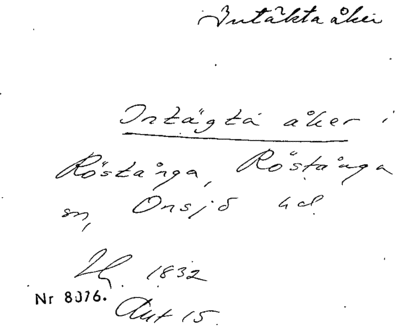 Intäktaåker
Intägta åker i
Röstånga, Röstånga
sn, Onsjö hd.
1832
Nr 8076.
Akt 15.